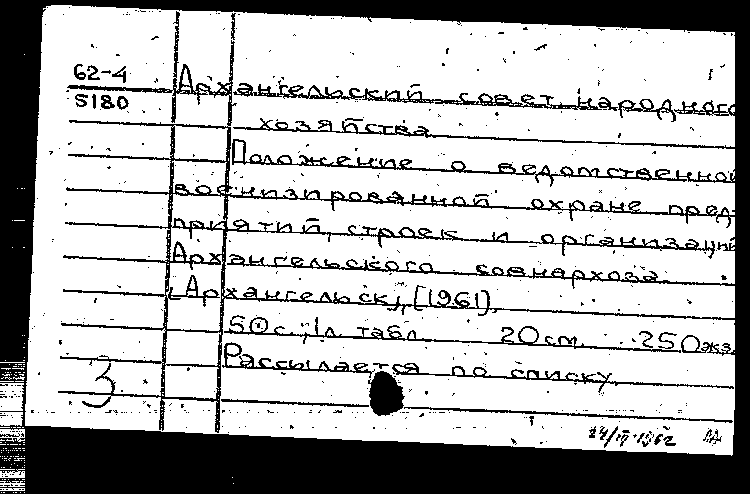 62-4
5180
Архангельский совет народного
хозяйства
Положение о ведомственной
военизированной охране пред-
приятий, строек и организаций
Архангельского совнархоза.
[Архангельск], [1961].
50 с., 1 л. табл. 20 см. 250 экз.
Рассылается по списку.
3